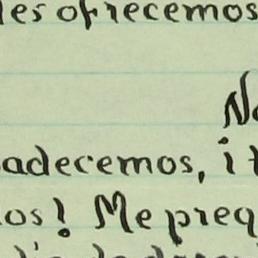 les ofrecemos
No
adecemos, i t
os! Me preg